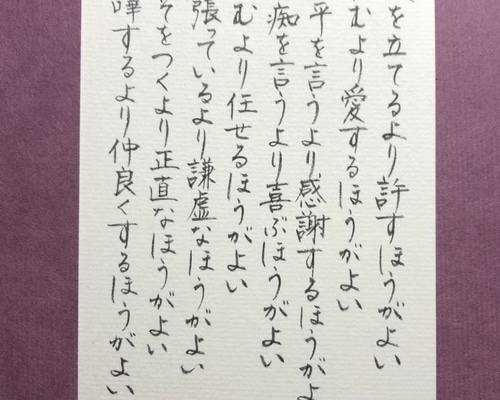 を立てるより許すほうがよい
むより愛するほうがよい
平を言うより感謝するほうがよ
痴を言うより喜ぶほうがよい
むより任せるほうがよい
張っているより謙虚なほうがよい
そをつくより正直なほうがよい
嘩するより仲良くするほうがよい